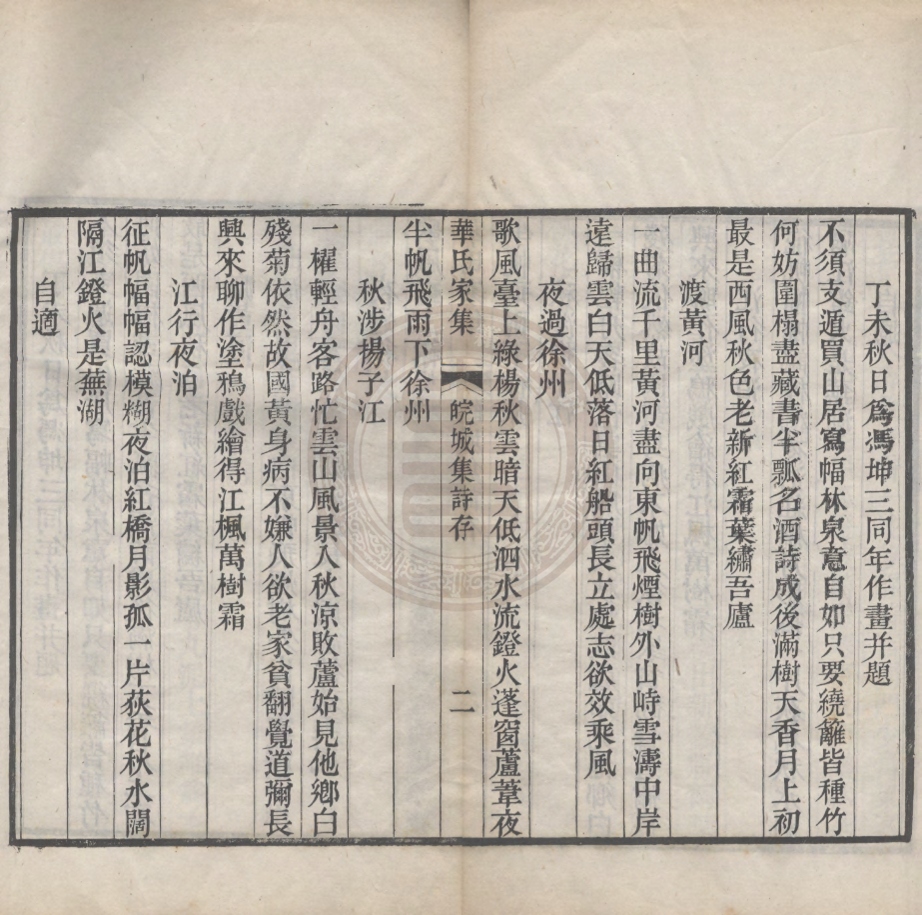 丁未秋日爲馮坤三同年作畫幷題
不須支遁買山居寫幅林泉意自如只要繞籬皆種竹
何妨圍榻盡藏書半瓢名酒詩成後滿樹天香月上初
最是西風秋色老新紅霜葉繡吾廬
渡黃河
一曲流千里黃河盡向東帆飛煙樹外山峙雪濤中岸
遠歸雲白天低落日紅船頭長立處志欲效乘風
夜過徐州
歌風臺上綠楊秋雲暗天低泗水流鐙火蓬窗蘆葦夜
華氏家集 皖城集詩存 二
半帆飛雨下徐州
秋涉揚子江
一櫂輕舟客路忙雲山風景入秋涼敗蘆始見他鄕白
殘菊依然故國黃身病不嫌人欲老家貧翻覺道彌長
興來聊作塗鴉戲繪得江楓萬樹霜
江行夜泊
征帆幅幅認模糊夜泊紅橋月影孤一片荻花秋水闊
隔江鐙火是蕪湖
自適